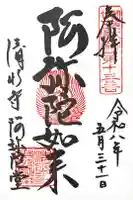 奉拝
令和八年
五月三十一日
阿弥陀如来
清水寺 阿弥陀堂